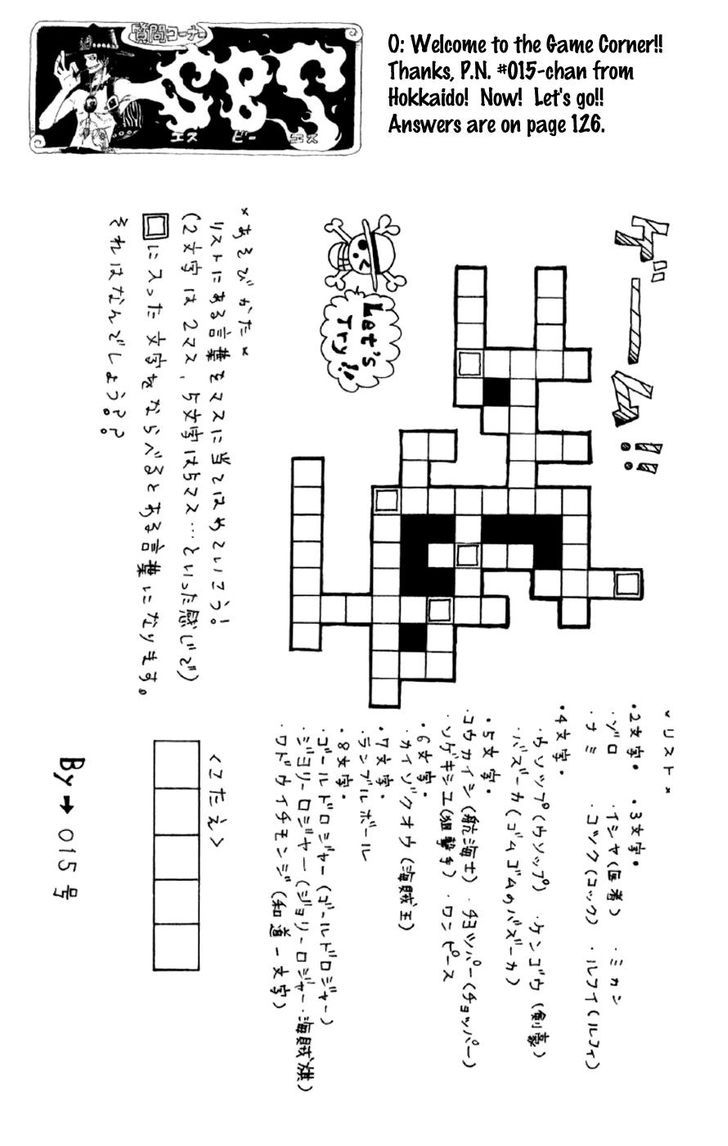 質問コーナー
SBS
エス ビー エス
O: Welcome to the Game Corner!!
Thanks, P.N. #015-chan from
Hokkaido! Now! Let's go!!
Answers are on page 126.
ゲーム!!
Let's
Try!!
×あそびかた×
リストにある言葉をマスに当てはめていこう!
(2文字は2マス、5文字は5マス…といった感じで)
に入った文字をならべるとある言葉になります。
それはなんでしょう??
×リスト×
•2文字•
・ゾロ
・ナミ
•3文字•
・イシャ(医者)
・ミカン
・コック(コック)
・ルフィ(ルフィ)
•4文字•
・ウソップ(ウソップ)
・ケンゴウ(剣豪)
・バズーカ(ゴムゴムのバズーカ)
•5文字•
・コウカイシ(航海士)
・チョッパー(チョッパー)
・ソゲキシュ(狙撃手)
・ワンピース
•6文字•
・カイゾクオウ(海賊王)
•7文字•
・ランブルボール
•8文字•
・ゴールドロジャー(ゴールドロジャー)
・ジョリーロジャー(ジョリーロジャー・海賊旗)
・ワドウイチモンジ(和道一文字)
<こたえ>
By→015号